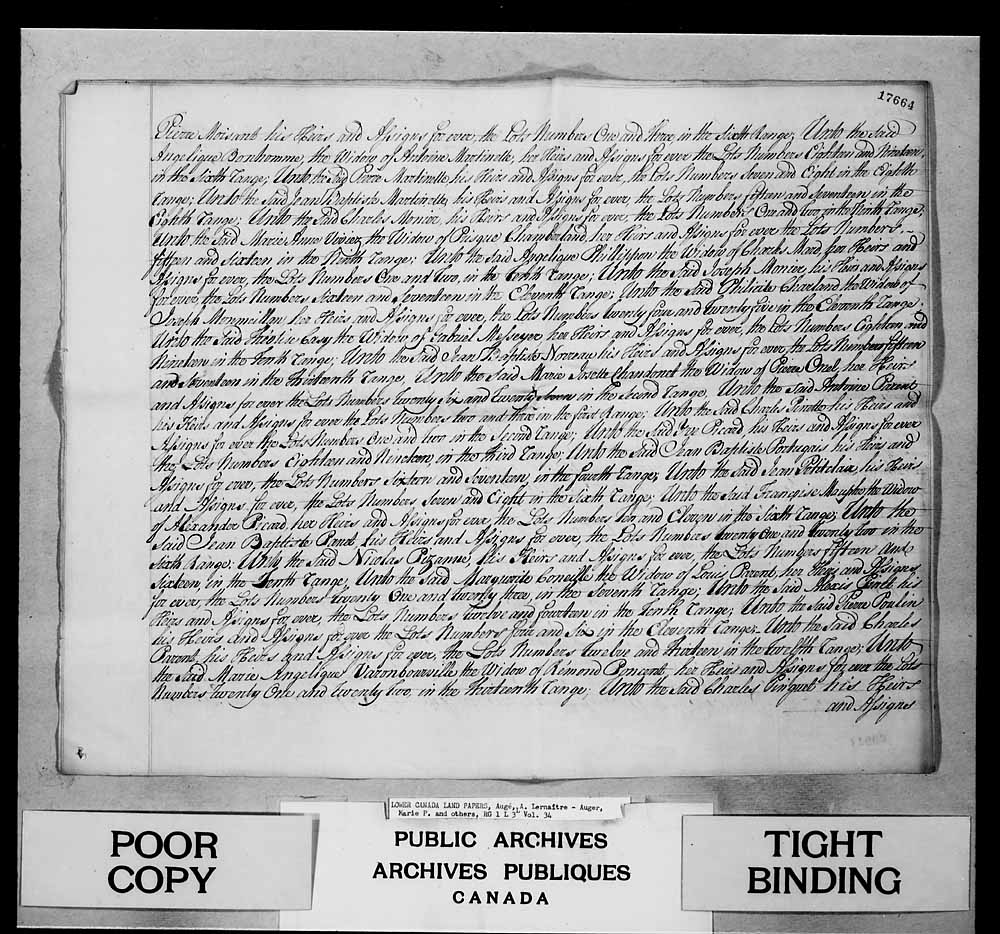 17664
Pierre Moisant his Heirs and Assigns for ever, the Lots Numbers One and three in the Sixth Range; Unto the Said
Angelique Bonhomme, the Widow of Antoine Martinette, her Heirs and Assigns for ever the Lots Numbers Eighteen and Nineteen,
in the Sixth Range; Unto the Said Pierre Martinette, his Heirs and Assigns for ever, the Lots Numbers Seven and Eight in the Eighth
Range; Unto the Said Jean Baptiste Martinette, his Heirs and Assigns for ever, the Lots Numbers fifteen and Seventeen in the
Eighth Range; Unto the Said Charles Monier, his Heirs and Assigns for ever, the Lots Numbers One and two in the Ninth Range;
Unto the Said Marie Anne Vivier the Widow of Prisque Chamberland, her Heirs and Assigns for ever the Lots Numbers
fifteen and Sixteen in the Ninth Range; Unto the Said Angelique Phillippon the Widow of Charles Mard, her Heirs and
Assigns for ever, the Lots Numbers One and two, in the tenth Range; Unto the Said Joseph Monier, his Heirs and Assigns
for ever, the Lots Numbers Sixteen and Seventeen in the Eleventh Range; Unto the Said Philicite Charland the Widow of
Joseph her Heirs and Assigns for ever, the Lots Numbers twenty four and twenty five in the Eleventh Range;
Unto the Said the Widow of Gabriel Messeyer her Heirs and Assigns for ever, the Lots Numbers Eighteen and
Nineteen in the tenth Range; Unto the Said Jean Baptiste Noreau his Heirs and Assigns for ever, the Lots Numbers fifteen
and Seventeen in the thirteenth Range, Unto the Said Marie Josette Chandonet the Widow of Pierre Ouel, her Heirs
and Assigns for ever the Lots Numbers twenty Six and twenty Seven in the Second Range, Unto the Said Antoine Parent
his Heirs and Assigns for ever the Lots Numbers two and three in the first Range; Unto the Said Charles Perrotte his Heirs and
Assigns for ever the Lots Numbers One and two in the Second Range; Unto the Said Picard his Heirs and Assigns for ever
the Lots Numbers Eighteen and Nineteen, in the third Range; Unto the Said Jean Baptiste Portugais his Heirs and
Assigns for ever, the Lots Numbers Sixteen and Seventeen, in the fourth Range, Unto the Said Jean Petitclair, his Heirs
and Assigns for ever, the Lots Numbers Seven and Eight in the Sixth Range; Unto the Said Françoise the Widow
of Alexander Picard, her Heirs and Assigns for ever the Lots Numbers ten and Eleven in the Sixth Range; Unto the
Said Jean Baptiste Panet his Heirs and Assigns for ever, the Lots Numbers twenty One and twenty two in the
Sixth Range; Unto the Said Nicolas Pizanne, his Heirs and Assigns for ever, the Lots Numbers fifteen and
Sixteen, in the Tenth Range, Unto the Said Marguerite Corneille the Widow of Louis Parent, her Heirs and Assigns
for ever, the Lots Numbers twenty One and twenty three, in the Seventh Range; Unto the Said his
Heirs and Assigns for ever, the Lots Numbers twelve and fourteen in the tenth Range; Unto the Said Pierre Poulin
his Heirs and Assigns for ever the Lots Numbers four and Six in the Eleventh Range; Unto the Said Charles
Parent, his Heirs and Assigns for ever; the Lots Numbers twelve and thirteen in the twelfth Range; Unto
the Said Marie Angelique the Widow of Rémond her Heirs and Assigns for ever the Lots
Numbers twenty One and twenty two, in the thirteenth Range; Unto the Said Charles Pinguet his Heirs
and Assigns
LOWER CANADA LAND PAPERS, Augé, A. Lemaître - Auger,
Marie P. and others, RG 1 L 3" Vol. 34
POOR
COPY
PUBLIC ARCHIVES
ARCHIVES PUBLIQUES
CANADA
TIGHT
BINDING